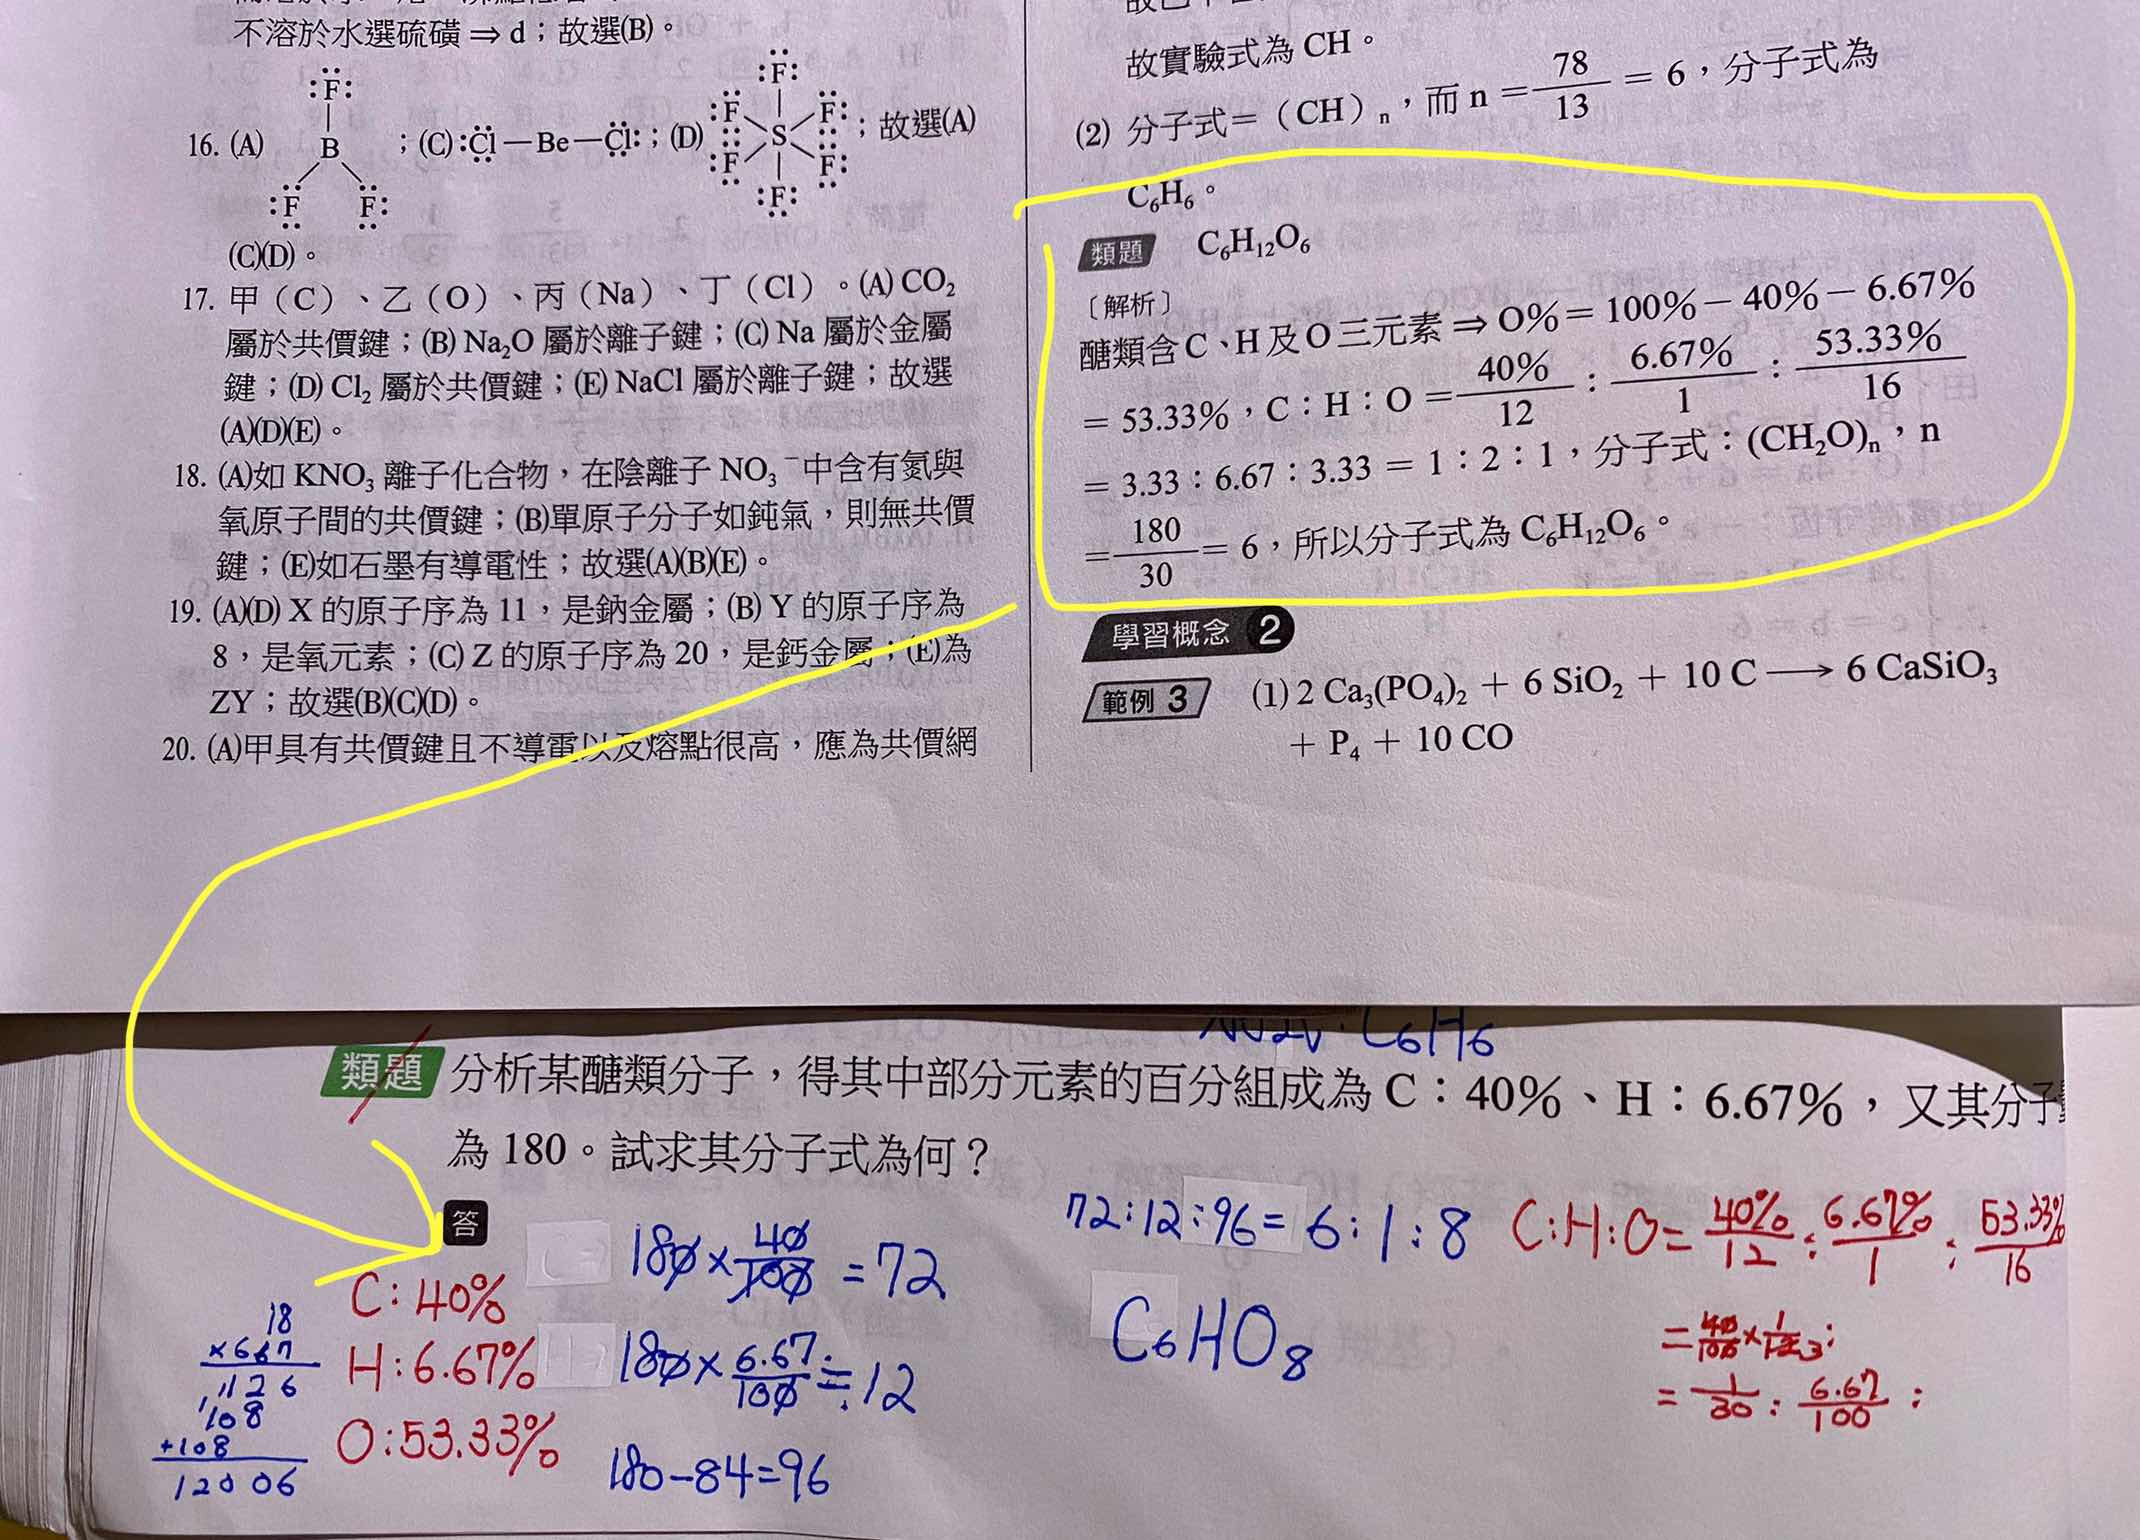 不溶於水選硫磺⇒d；故選(B)。
16. (A) F B F F ；(C) Cl—Be—Cl ；(D) F F F S F F F ；故選(A)
(C)(D)。
17. 甲（C）、乙（O）、丙（Na）、丁（Cl）。(A) CO₂
屬於共價鍵；(B) Na₂O 屬於離子鍵；(C) Na 屬於金屬
鍵；(D) Cl₂ 屬於共價鍵；(E) NaCl 屬於離子鍵；故選
(A)(D)(E)。
18. (A)如 KNO₃ 離子化合物，在陰離子 NO₃⁻中含有氮與
氧原子間的共價鍵；(B)單原子分子如鈍氣，則無共價
鍵；(E)如石墨有導電性；故選(A)(B)(E)。
19. (A)(D) X 的原子序為 11，是鈉金屬；(B) Y 的原子序為
8，是氧元素；(C) Z 的原子序為 20，是鈣金屬；(E)為
ZY；故選(B)(C)(D)。
20. (A)甲具有共價鍵且不導電以及熔點很高，應為共價網
故實驗式為 CH。
(2) 分子式＝（CH）ₙ，而 n＝78/13＝6，分子式為
C₆H₆。
類題 C₆H₁₂O₆
〔解析〕
醣類含 C、H 及 O 三元素⇒O%＝100%－40%－6.67%
＝53.33%，C：H：O＝40%/12：6.67%/1：53.33%/16
＝3.33：6.67：3.33＝1：2：1，分子式：(CH₂O)ₙ，n
＝180/30＝6，所以分子式為 C₆H₁₂O₆。
學習概念 2
範例 3 (1) 2 Ca₃(PO₄)₂ + 6 SiO₂ + 10 C ⟶ 6 CaSiO₃
+ P₄ + 10 CO
C₆H₆
類題 分析某醣類分子，得其中部分元素的百分組成為 C：40%、H：6.67%，又其分子
為 180。試求其分子式為何？
答
C: 40%
H: 6.67%
O: 53.33%
18
×667
126
108
+108
12006
180×40/100=72
180×6.67/100≒12
180-84=96
72:12:96=6:1:8
C₆HO₈
C:H:O=40%/12:6.67%/1:53.33%/16
=40/100×1/12 3:
=1/30:6.67/100: